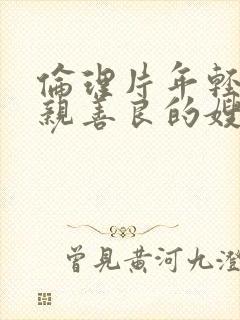 倫理片年輕
親善良的嫂
曾見黃河九澄